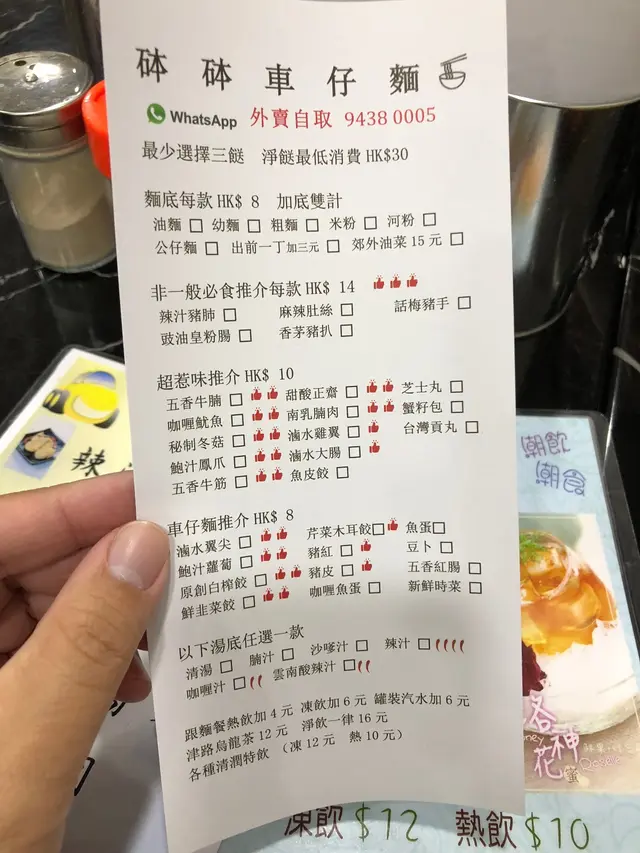 砵砵車仔麵
WhatsApp 外賣自取 9438 0005
最少選擇三餸 淨餸最低消費 HK$30
麵底每款 HK$ 8 加底雙計
油麵 □ 幼麵 □ 粗麵 □ 米粉 □ 河粉 □
公仔麵 □ 出前一丁加三元 □ 郊外油菜 15 元 □
非一般必食推介每款 HK$ 14
辣汁豬肺 □ 麻辣肚絲 □ 話梅豬手 □
豉油皇粉腸 □ 香茅豬扒 □
超惹味推介 HK$ 10
五香牛腩 □ 甜酸正齋 □ 芝士丸 □
咖喱魷魚 □ 南乳腩肉 □ 蟹籽包 □
秘制冬菇 □ 滷水雞翼 □ 台灣貢丸 □
鮑汁鳳爪 □ 滷水大腸 □
五香牛筋 □ 魚皮餃 □
車仔麵推介 HK$ 8
滷水翼尖 □ 芹菜木耳餃 □ 魚蛋 □
鮑汁蘿蔔 □ 豬紅 □ 豆卜 □
原創白榨餃 □ 豬皮 □ 五香紅腸 □
鮮韭菜餃 □ 咖喱魚蛋 □ 新鮮時菜 □
以下湯底任選一款
清湯 □ 腩汁 □ 沙嗲汁 □ 辣汁 □
咖喱汁 □ 雲南酸辣汁 □
跟麵餐熱飲加 4 元 凍飲加 6 元 罐裝汽水加 6 元
津路烏龍茶 12 元 淨飲一律 16 元
各種清潤特飲 （凍 12 元 熱 10 元）
辣
潮飲
潮食
花神
凍飲 $12 熱飲 $10